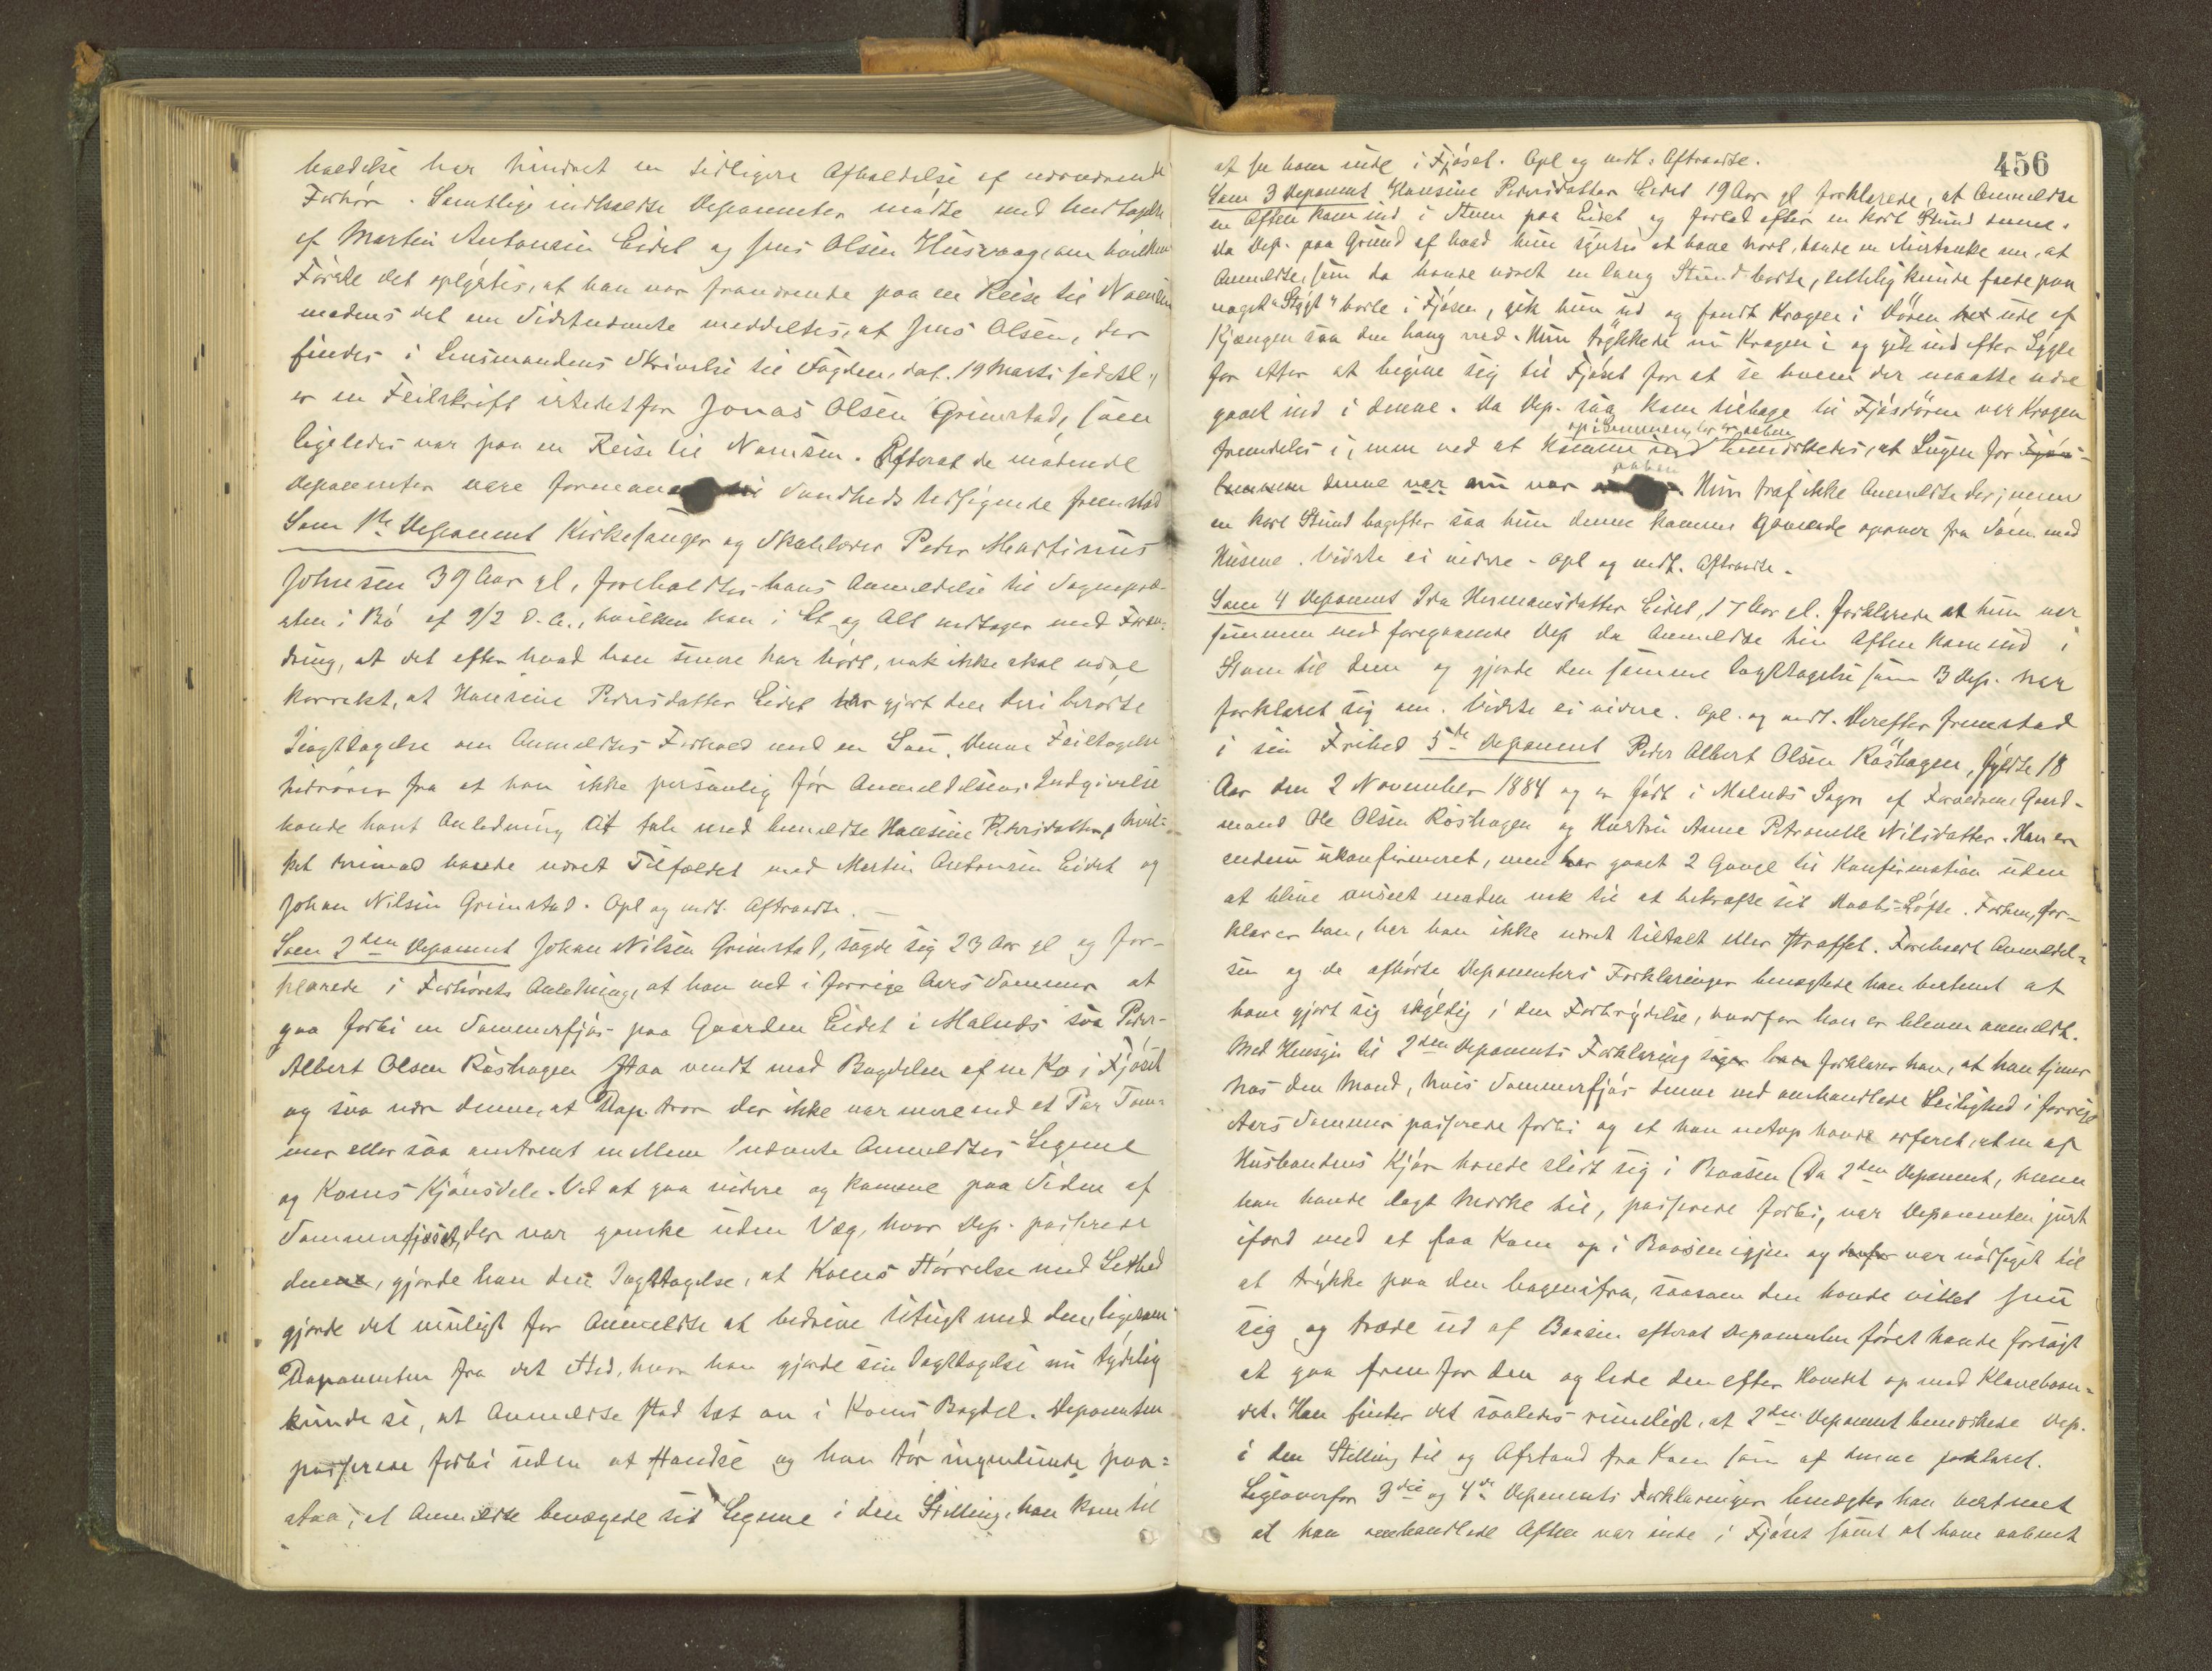 holdelse har hindret en tidligere Afholdelse af nærværende
Forhør. Samtlige indkaldte Deponenter mødte med Undtagelse
af Martin Antonsen Eidet og Jens Olsen Husvaag, om hvilken
Første det oplystes, at han var fraværende paa en Reise til Namsen
medens det om Sidstnævnte meddeltes, at Jens Olsen, der
findes i Lensmandens Skrivelse til Fogden, dat. 19 Marts sidstl.,
er en Feilskrift istedetfor Jonas Olsen Grimstad, som
ligeledes var paa en Reise til Namsen. Efterat de mødende
Deponenter vare formanede til Sandheds Udsigende fremstod
Som 1ste Deponent Kirkesanger og Skolelærer Peder Martinus
Johnsen 39 Aar gl, foreholdtes hans Anmeldelse til Sognepræ-
sten i Bø af 9/2 d.A., hvilken han i Et og Alt vedtager med Foran-
dring, at det efter hvad han senere har hørt, nok ikke skal være
korrekt, at Hansine Pedersdatter Eidet har gjort den deri berørte
Iagttagelse om Anmeldtes Forhold med en Sau. Denne Feiltagelse
hidrører fra at han ikke personlig før Anmeldelsens Indgivelse
havde havt Anledning til at tale med bemeldte Hansine Pedersdatter, hvil-
ket derimod havde været Tilfældet med Martin Antonsen Eidet og
Johan Nilsen Grimstad. Opl og vedt. Aftraadte. –
Som 2den Deponent Johan Nilsen Grimstad, sagde sig 23 Aar gl og for-
klarede i Forhørets Anledning, at han ved i forrige Aars Sommer at
gaa forbi en Sommerfjøs paa Gaarden Eidet i Malnes saa Peder
Albert Olsen Røshagen staa vendt mod Bagdelen af en Ko i Fjøset
og saa nær denne, at Dep. tror der ikke var mere end et Par Tom-
mer eller saa omtrent mellem nævnte Anmeldtes Legeme
og Koens Kjønsdele. Ved at gaa videre og komme paa Siden af
Sommerfjøset, der var ganske uden Væg, hvor Dep. passerede
denne, gjorde han den Iagttagelse, at Koens Størrelse med Lethed
gjorde det muligt for Anmeldte at bedrive Utugt med den, ligesom
Deponenten fra det Sted, hvor han gjorde sin Iagttagelse nu tydelig
kunde se, at Anmeldte stod tæt an i Koens Bagdel. Deponenten
passerede forbi uden at standse og han tør ingenlunde paa-
staa, at Anmeldte bevægede sit Legeme i den Stilling, han kom til
456
at se ham inde i Fjøset. Opl og vedt. Aftraadte.
Som 3 Deponent Hansine Pedersdatter Eidet 19 Aar gl forklarede, at Anmeldte
en Aften kom ind i Stuen paa Eidet og forlod efter en kort Stund denne.
Da Dep. paa Grund af hvad hun syntes at have hørt, havde en Mistanke om, at
Anmeldte, som da havde været en lang Stund borte, lettelig kunde finde paa
noget "Stygt" borte i Fjøsen, gik hun ud og fandt Krogen i Døren ude af
Kjængen saa den hang ned. Hun trykkede nu Krogen i og gik ind efter Lygte
for atter at begive sig til Fjøset for at se hvem der maatte være
gaaet ind i denne. Da Dep. saa kom tilbage til Fjøsdøren var Krogen
op i Lemmen, der var aaben
fremdeles i, men ved at komme ind bemærkedes, at Lugen for Fjøs-
aaben
lemmen denne var nu var Hun traf ikke Anmeldte der; men
en kort Stund bagefter saa hun denne komme gaaende opover fra Søen mod
Husene. Vidste ei videre. Opl og vedt. Aftraadte. –
Som 4 Deponent Ida Hermansdatter Eidet, 17 Aar gl. forklarede at hun var
sammen med foregaaende Dep da Anmeldte hin Aften kom ind i
Stuen til dem og gjorde den samme Iagttagelse som 3 Dep. har
forklaret sig om. Vidste ei videre. Opl. og vedt. Derefter fremstod
i sin Frihed 5te Deponent Peder Albert Olsen Røshagen, fyldte 18
Aar den 2 November 1884 og er født i Malnes Sogn af Forældrene Gaard-
mand Ole Olsen Røshagen og Hustru Anne Petronelle Nilsdatter. Han er
endnu ukonfirmeret, men har gaaet 2 Gange til Konfirmation uden
at blive anseet moden nok til at bekræfte sit Daabs-Løfte. Forhen, for-
klarer han, har han ikke været tiltalt eller straffet. Forehavt Anmeldel-
sen og de afhørte Deponenters Forklaringer benægtede han bestemt at
have gjort sig skyldig i den Forbrydelse, hvorfor han er bleven anmeldt.
Med Hensyn til 2den Deponents Forklaring siger han forklarer han, at han tjener
hos den Mand, hvis Sommerfjøs denne ved omhandlede Leilighed i forrige
Aars Sommer passerede forbi og at han netop havde erfaret, at en af
Husbondens Kjør havde slidt sig i Baasen (Da 2den Deponent, hvem
han havde lagt Mærke til, passerede forbi, var Deponenten just
ifærd med at faa Koen op i Baasen igjen og derfor var nødsaget til
at trykke paa den bagenifra, saasom den havde villet snu
sig og træde ud af Baasen efterat Deponenten først havde forsøgt
at gaa fremfor den og lede den efter Hovedet op mod Klavebaan-
det. Han finder det saaledes rimeligt, at 2den Deponent bemærkede Dep.
i den Stilling til og Afstand fra Koen som af denne forklaret.
Ligeoverfor 3die og 4de Deponents Forklaringer benægter han bestemt
at han omhandlede Aften var inde i Fjøset samt at have aabnet